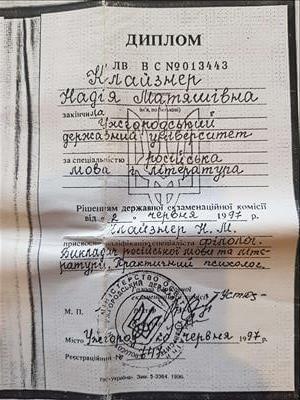 ДИПЛОМ
ЛВ ВЄ №013443
Клайзнер
Надія Матяшівна
закінчила Ужгородський
державний університет
за спеціальністю російська
мова і література
Рішенням державної екзаменаційної комісії
від „2" червня 1997 р.
Клайзнер Н. М.
присвоєно кваліфікацію спеціаліста філолог.
Викладач російської мова та літе-
ратури. Практичний психолог.
М. П.
Місто Ужгород червня 1997 р.
Реєстраційний №